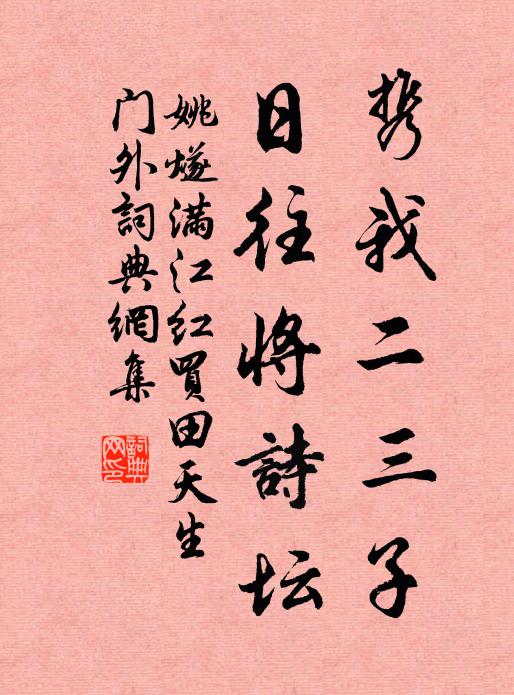 携我二三子
日往将詩坛
姚燧满江红買田天生
门外詞典網集
詞典网印